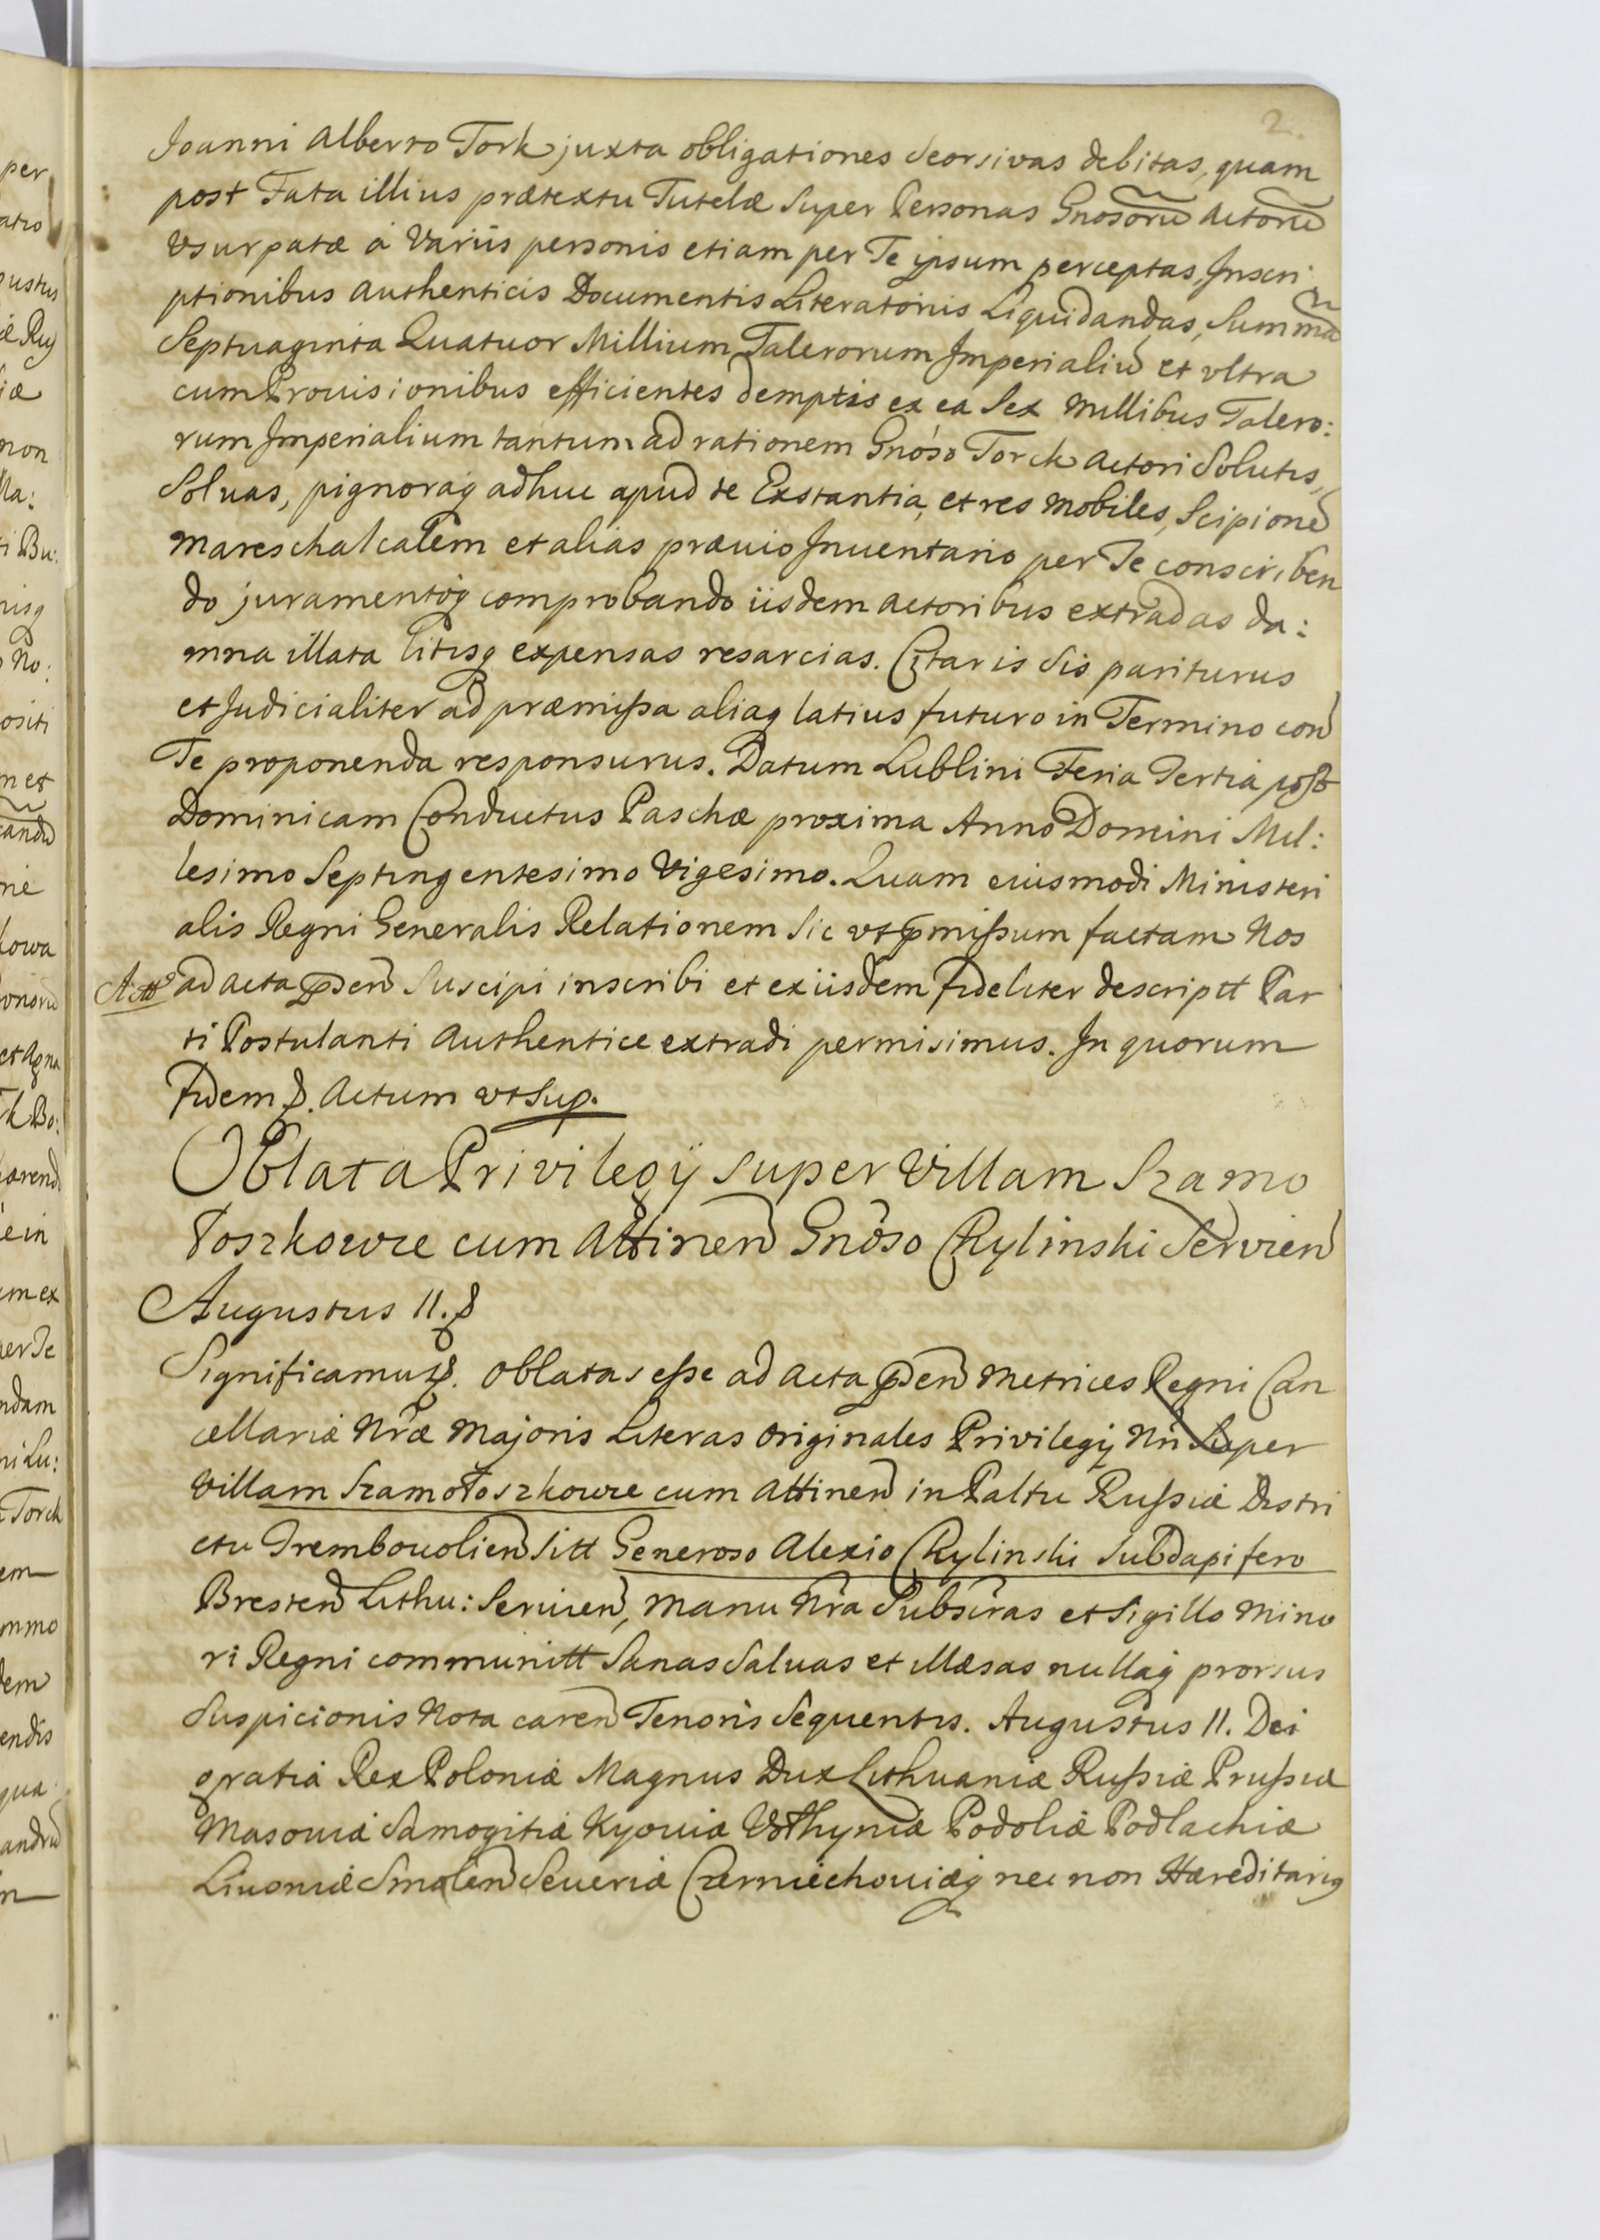 2.
Joanni Alberto Tork juxta obligationes seorsivas debitas, quam
post Fata illius prætextu Tutelæ super Personas Gnosorũ Actorũ
vsurpatæ à Varijs personis etiam per Te ipsum perceptas, Inscri
ptionibus Authenticis Documentis Literatorijs Liquidandas, Summã
Septuaginta Quatuor Millium Talerorum Imperialiũ et vltra
cum Prouisionibus efficientes demptis ex ea Sex Millibus Talero:
rum Imperialium tantum ad rationem Gnoso Torck Actori Solutis,
Soluas, pignoraq adhuc apud te Exstantia, et res mobiles, Scipionẽ
Mareschalcalem et alias præuio Inuentario per Te conscriben
do juramentoq comprobando iisdem Actoribus extradas da:
mna illata litisq expensas resarcias. Citaris sis pariturus
et Judicialiter ad præmissa aliaq latius futuro in Termino con
Te proponenda responsurus. Datum Lublini Feria Tertia post
Dominicam Conductus Paschæ proxima Anno Domini Mil:
lesimo Septingentesimo Vigesimo. Quam eiusmodi Ministeri
alis Regni Generalis Relationem sic vt pmissum factam Nos
ad Acta psen suscipi inscribi et ex iisdem fideliter descriptt Par
ti Postulanti Authentice extradi permisimus. In quorum
Fidem &. Actum vt Sup.
Oblata Privilegij super Villam Szamo
Toszkowce cum Attinen Gnoso Rylinski Servien
Augustus II. &
Significamus &. Oblatas esse ad Acta psen Metrices Regni Can
cellariæ Nræ Majoris Literas originales Privilegij Nri Super
Villam Szamotoszkowce cum Attinen in Paltu Russiæ Distri
ctu Trembouolien sitt Generoso Alexio Rylinski Subdapifero
Bresten Lithu: Seruien, Manu Nra Subscras et Sigillo Mino
ri Regni communitt Sanas Saluas et illæsas nullaq prorsus
Suspicionis Nota caren Tenoris Sequentis. Augustus II. Dei
gratia Rex Poloniæ Magnus Dux Lithuaniæ Russiæ Prussiæ
Masouiæ Samogitiæ Kyouiæ Volhyniæ Podoliæ Podlachiæ
Liuoniæ Smolen Seueriæ Czerniechouiæq nec non Hæreditarius